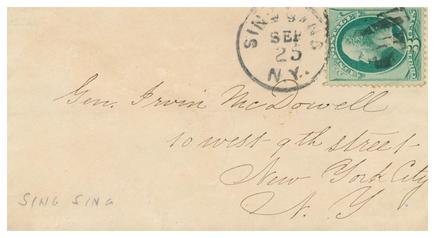 SING SING
SEP
25
N.Y.
Gen. Irvin McDowell
10 west 9th street
New York City
N. Y.
SING SING